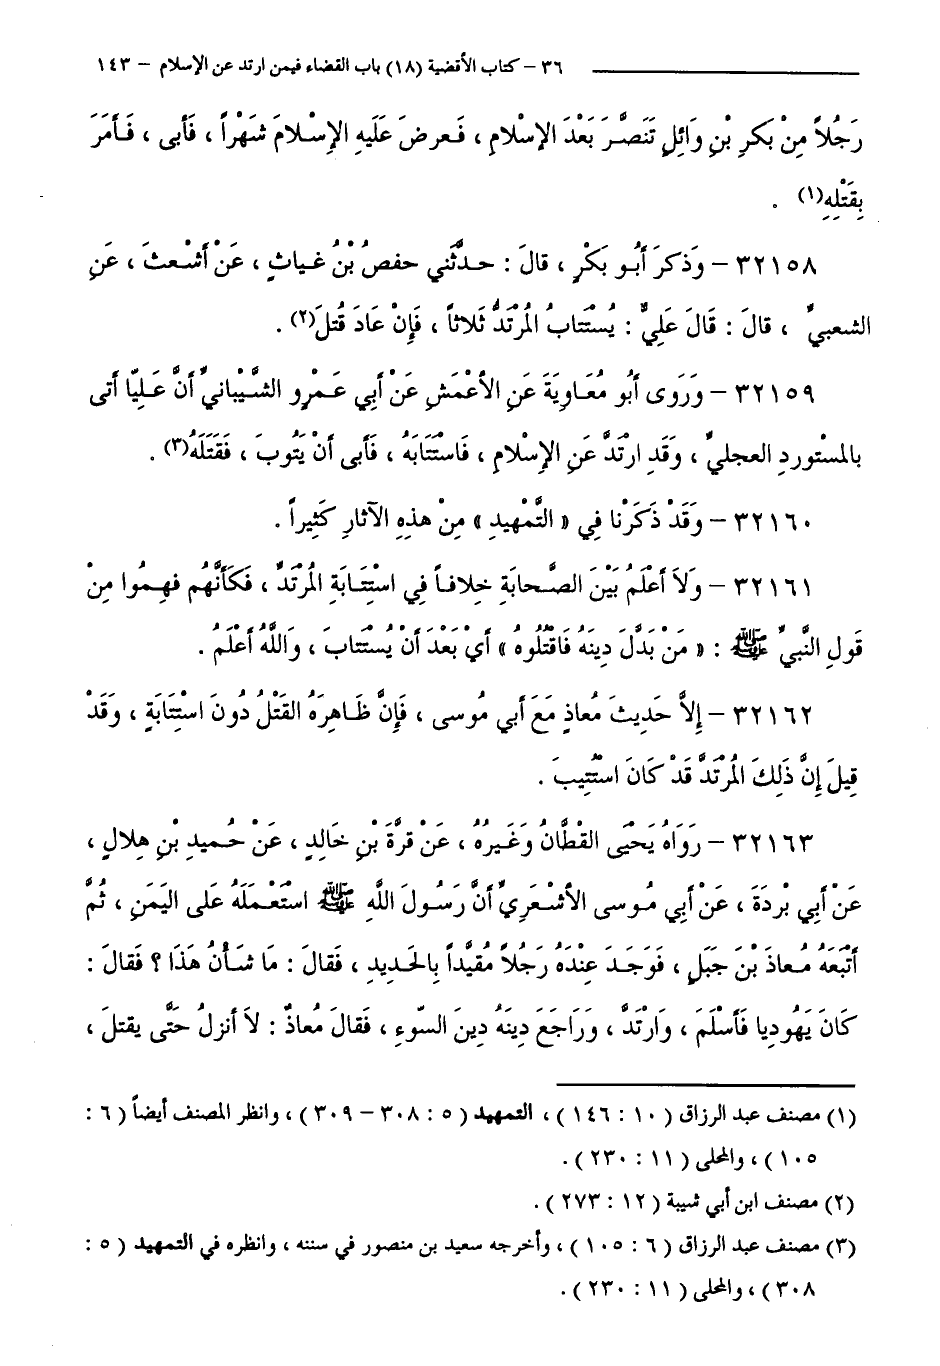 ٣٦ – كتاب الأقضية (١٨) باب القضاء فيمن ارتد عن الإسلام – ١٤٣
رَجُلاً مِنْ بَكرِ بْنِ وَائِلٍ تَنَصَّرَ بَعْدَ الإِسْلامِ ، فَعرضَ عَلَيهِ الإِسْلامَ شَهْراً ، فَأبى ، فَأمَرَ
بِقَتْلِهِ(١) .
٣٢١٥٨ – وَذكرَ أَبُو بَكْرٍ ، قالَ : حدثَّني حفصُ بْنُ غياثٍ ، عَنْ أشْعثَ ، عَنِ
الشعبيِّ ، قالَ : قَالَ عَلِيٌّ : يُسْتَتابُ المُرْتَدُّ ثَلاثاً ، فَإِنْ عَادَ قُتلَ(٢) .
٣٢١٥٩ – وَرَوى أَبُو مُعَاوِيَةَ عَنِ الأَعْمَشِ عَنْ أبِي عَمْرٍو الشَّيْبانيِّ أنَّ عَلِيّا أتى
بالمسْتوردِ العجليِّ ، وَقَدِ ارْتَدَّ عَنِ الإِسْلامِ ، فَاسْتَتَابَهُ ، فَأبى أنْ يَتُوبَ ، فَقَتَلَهُ(٣) .
٣٢١٦٠ – وَقَدْ ذَكَرْنا فِي « التَّمْهيدِ » مِنْ هذِهِ الآثارِ كَثِيراً .
٣٢١٦١ – وَلاَ أعْلَمُ بَيْنَ الصَّحابَةِ خلافاً فِي اسْتِتَابَةِ المُرْتَدِّ ، فَكَأنَّهُم فهِمُوا مِنْ
قَولِ النَّبيِّ ﷺ : « مَنْ بَدَّلَ دِينَهُ فَاقْتُلُوهُ » أيْ بَعْدَ أنْ يُسْتَتابَ ، وَاللَّهُ أعْلَمُ .
٣٢١٦٢ – إِلاَّ حَديثَ مُعاذٍ مَعَ أبي مُوسى ، فَإِنَّ ظَاهِرَهُ القَتْلُ دُونَ اسْتِتَابَةٍ ، وَقَدْ
قِيلَ إِنَّ ذَلِكَ المُرْتَدَّ قَدْ كَانَ اسْتُتِيبَ .
٣٢١٦٣ – رَوَاهُ يَحْيَى القَطَّانُ وَغَيرُهُ ، عَنْ قرَّةَ بْنِ خَالِدٍ ، عَنْ حُميدِ بْنِ هِلالٍ ،
عَنْ أبِي بُرْدَةَ ، عَنْ أبِي مُوسى الأشْعَرِيِّ أنَّ رَسُولَ اللَّهِ ﷺ اسْتَعْملَهُ عَلى اليَمَنِ ، ثُمَّ
أتْبَعَهُ مُعاذَ بْنَ جَبَلٍ ، فَوَجَدَ عِنْدَهُ رَجُلاً مُقَيَّداً بِالحَديدِ ، فَقالَ : مَا شَأنُ هَذَا ؟ فَقالَ :
كَانَ يَهُودِيا فَأسْلَمَ ، وَارْتَدَّ ، وَرَاجَعَ دِينَهُ دِينَ السّوءِ ، فَقالَ مُعاذٌ : لاَ أنزلُ حَتَّى يقتلَ ،
(١) مصنف عبد الرزاق ( ١٠ : ١٤٦ ) ، التمهيد ( ٥ : ٣٠٨ – ٣٠٩ ) ، وانظر المصنف أيضاً ( ٦ :
١٠٥ ) ، والمحلى ( ١١ : ٢٣٠ ) .
(٢) مصنف ابن أبي شيبة ( ١٢ : ٢٧٣ ) .
(٣) مصنف عبد الرزاق ( ٦ : ١٠٥ ) ، وأخرجه سعيد بن منصور في سننه ، وانظره في التمهيد ( ٥ :
٣٠٨ ) ، والمحلى ( ١١ : ٢٣٠ ) .